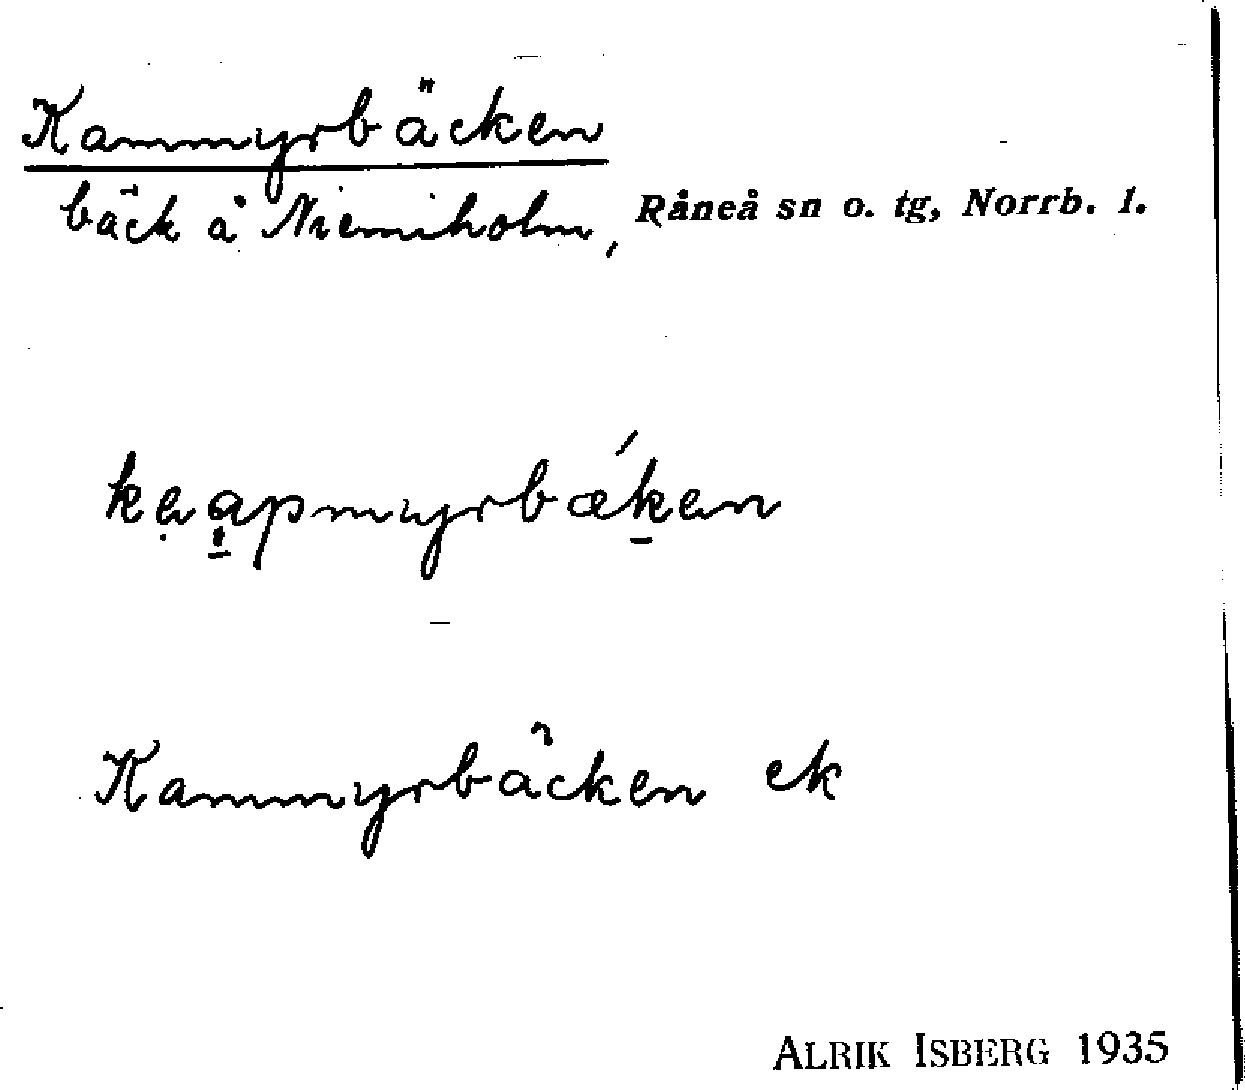 Kammyrbäcken
bäck å Niemiholm, Råneå sn o. tg, Norrb. l.
kẹạpmyrbǽken
Kammyrbäcken ek
ALRIK ISBERG 1935